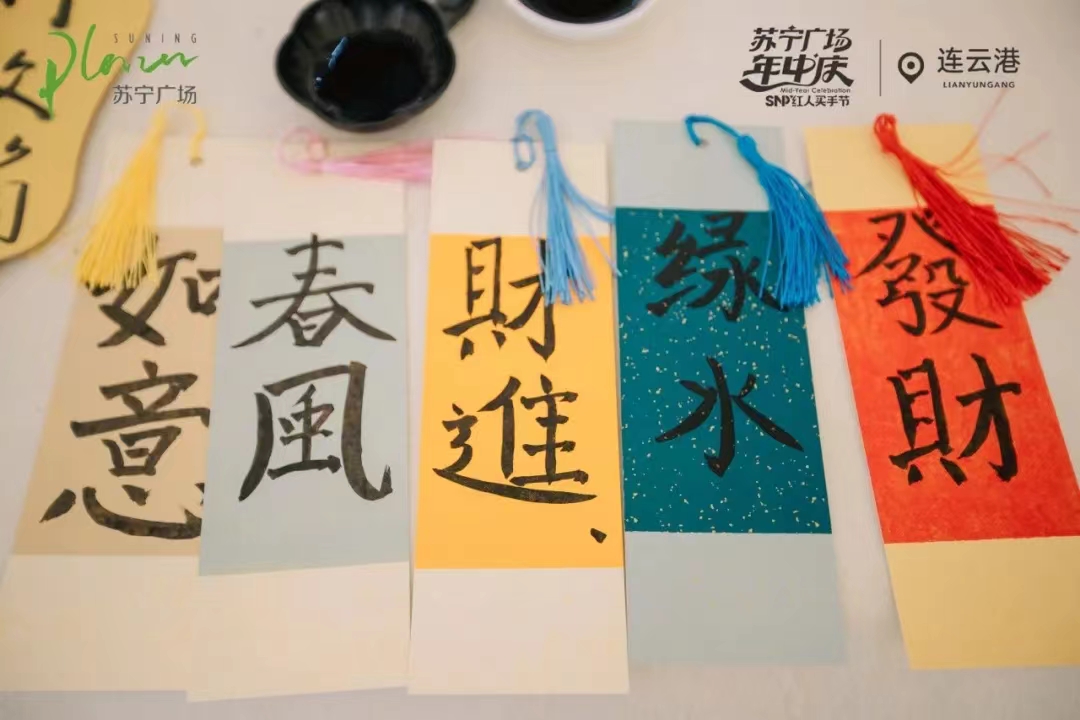 SUNING
Plaza
苏宁广场
苏宁广场
年中庆
Mid-Year Celebration
SNP红人买手节
连云港
LIANYUNGANG
如
意
春
風
財
進
緑
水
發
財